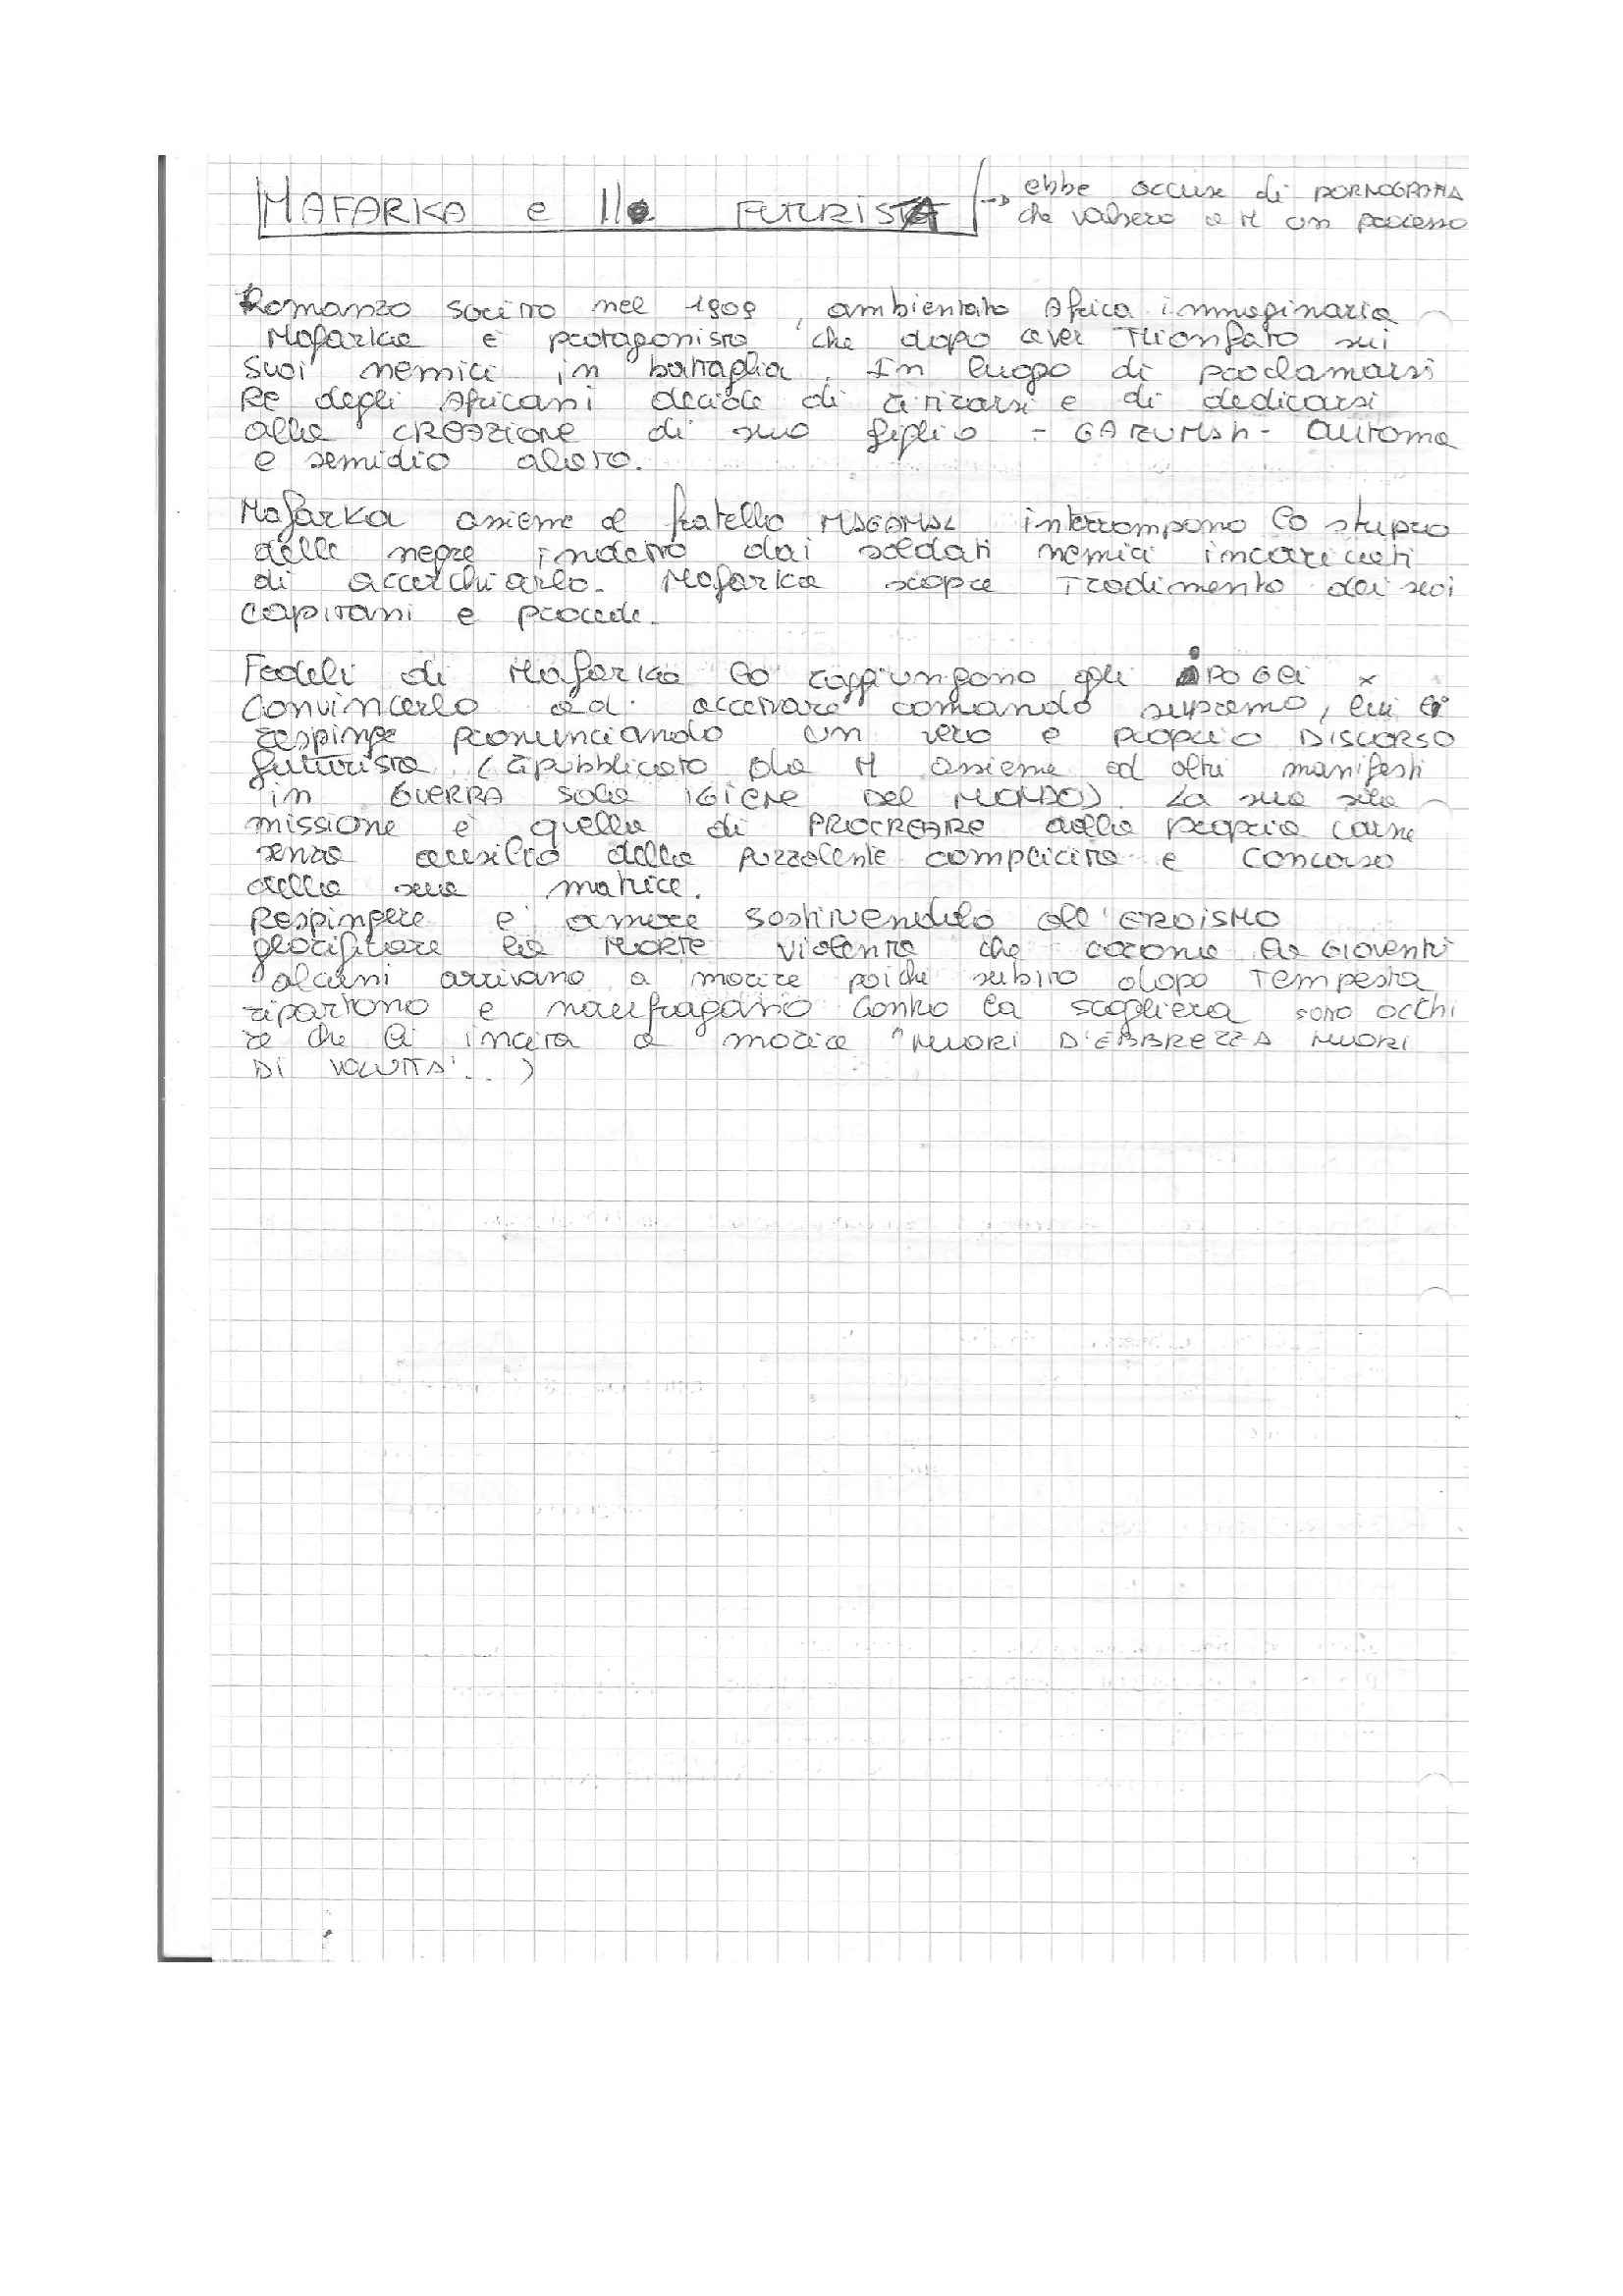 MAFARKA e Il FUTURISTA
→ ebbe accuse di PORNOGRAFIA
che valsero a M un processo
Romanzo scritto nel 1909, ambientato Africa immaginaria
Mafarka è protagonista che dopo aver trionfato sui
suoi nemici in battaglia. In luogo di proclamarsi
Re degli Africani decide di ritirarsi e di dedicarsi
alla CREAZIONE di suo figlio - GAZURMAH - automa
e semidio alato.
Mafarka assieme al fratello MAGAMAL interrompono lo stupro
delle negre indetto dai soldati nemici incaricati
di accerchiarlo. Mafarka scopre tradimento dei suoi
capitani e procede.
Fedeli di Mafarka lo raggiungono gli ipogei x
convincerlo ad accettare comando supremo, lui li
respinge pronunciando un vero e proprio DISCORSO
futurista (ripubblicato da M assieme ad altri manifesti
in GUERRA SOLA IGIENE DEL MONDO). La sua sola
missione è quella di PROCREARE dalla propria carne
senza ausilio della puzzolente complicità e concorso
della sua matrice.
Respingere è amore sostituendolo all'EROISMO
glorificare la MORTE violenta che corona la Gioventù
alcuni arrivano a morire poiché subito dopo Tempesta
ripartono e naufragano contro la scogliera sono occhi
re che li incita a morire "MUORI D'EBBREZZA MUORI
DI VOLUTTA'...)